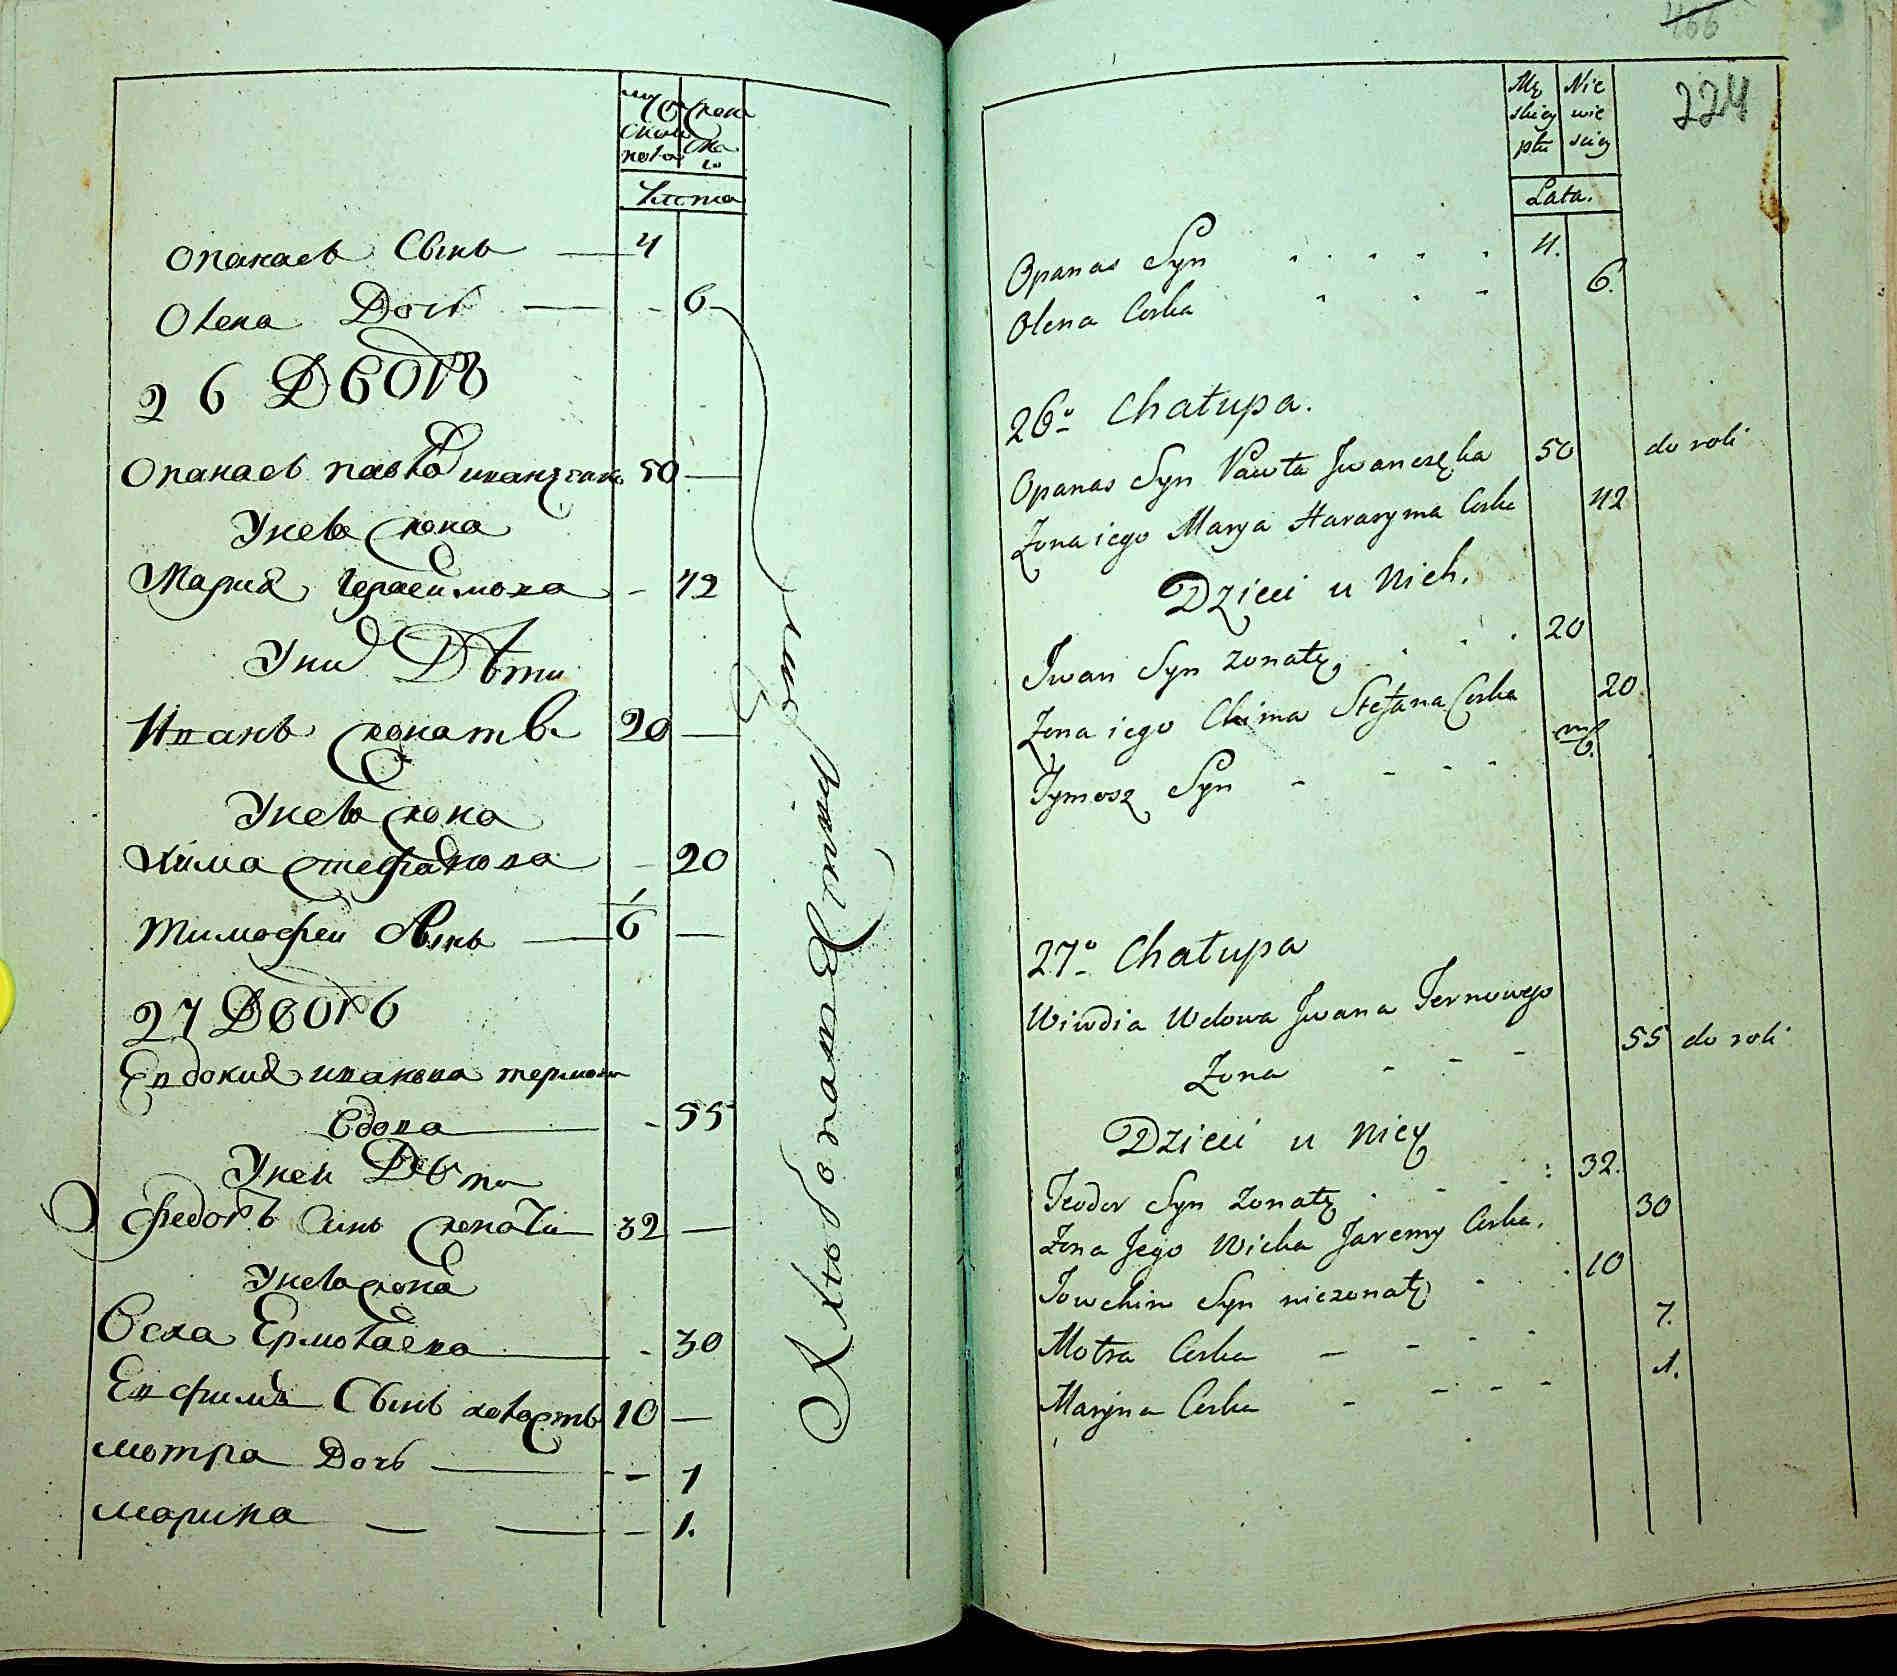 Лѣта
Опанасъ Сынъ — 4
Олена Дочь — - 6
26 Дворъ
Опанасъ Павловъ Иванчакъ 50 —
У него жона
Мария Герасимова - 42
У них Дѣти
Иванъ жонатъ 20 —
У него жона
Хима Стефанова - 20
Тимофей Сынъ — 6 —
27 Дворъ
Евдокия Иванова
Вдова — - 55
У ней Дѣти
Федоръ Сынъ жонатъ 32 —
У него жона
Ермолаева — - 30
Ефимъ Сынъ холостъ 10 —
Мотра Дочь — - 7
Марина — — - 1.
Хлѣбопашествомъ
Mę Nie
skiey wie
płci sciey
Lata.
224
Opanas Syn . . . . . 4.
Olena Corka . . - 6.
26o Chałupa.
Opanas Syn Pawła Jwanczęka 50 do roli
Zona iego Marya Harasyma Corka 42
Dzieci u Nich.
Jwan Syn zonaty . . . 20
Zona iego Chima Stefana Corka 20
Tymosz Syn - - - - 6.
27o Chałupa
Wiwdia Wdowa Jwana Ternowego
Zona - - - 55 do roli
Dzieci u Niey
Teodor Syn zonaty . - - : 32.
Zona Jego Wicka Jaremy Corka. 30
Jowchim Syn niezonaty . . . 10
Motra Corka — - - - 7.
Maryna Corka - - - - 1.